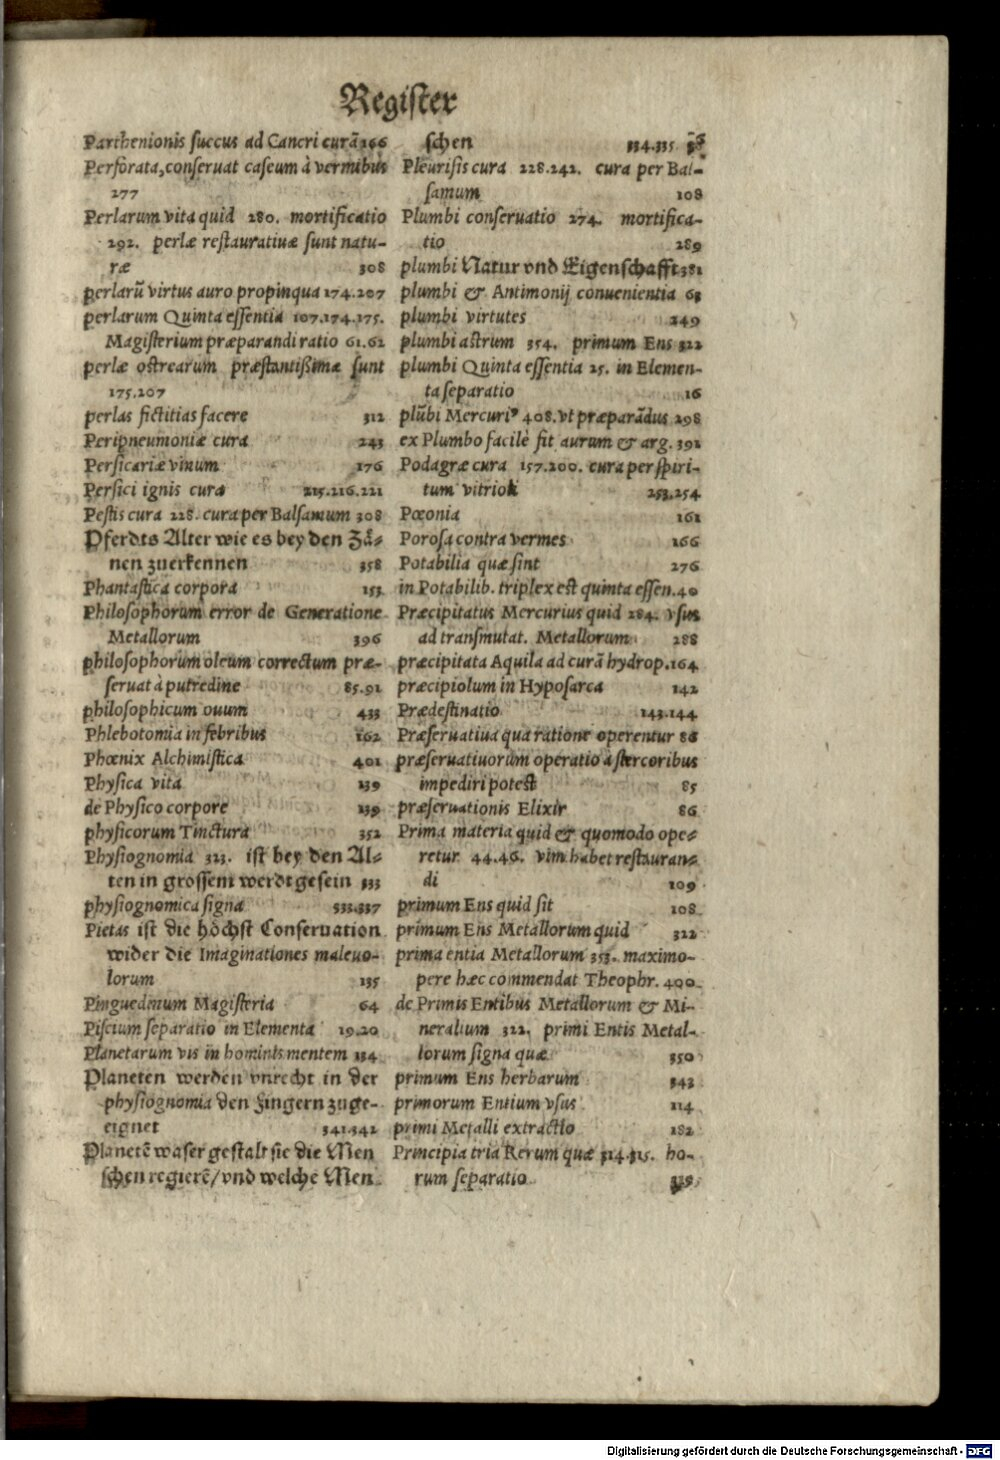 Register
Parthenionis succus ad Cancri curā 166
Perforata, conseruat caseum à vermibus
277
Perlarum vita quid 280. mortificatio
292. perlæ restauratiuæ sunt natu-
ræ 308
perlarū virtus auro propinqua 174.207
perlarum Quinta essentia 107.174.175.
Magisterium præparandi ratio 61.62
perlæ ostrearum præstantißimæ sunt
175.207
perlas fictitias facere 312
Peripneumoniæ cura 243
Persicariæ vinum 176
Persici ignis cura 215.216.221
Pestis cura 228. cura per Balsamum 308
Pferdts Alter wie es bey den Zå-
nen zuerkennen 358
Phantastica corpora 153
Philosophorum error de Generatione
Metallorum 396
philosophorum oleum correctum præ-
seruat à putredine 85.91
philosophicum ouum 433
Phlebotomia in febribus 162
Phœnix Alchimistica 401
Physica vita 139
de Physico corpore 139
physicorum Tinctura 352
Physiognomia 323. ist bey den Al-
ten in grossem werdt gesein 333
physiognomica signa 533.337
Pietas ist die höchst Conseruation
wider die Imaginationes maleuo-
lorum 135
Pinguedinum Magisteria 64
Piscium separatio in Elementa 19.20
Planetarum vis in hominis mentem 334
Planeten werden vnrecht in der
physiognomia den Fingern zuge-
eignet 341.342
Planetē waser gestalt sie die Men
schen regierē/ vnd welche Men
schen 334.335
Pleurisis cura 228.242. cura per Bal-
samum 108
Plumbi conseruatio 274. mortifica-
tio 289
plumbi Natur vnd Eigenschafft 381
plumbi & Antimonij conuenientia 61
plumbi virtutes 249
plumbi astrum 354. primum Ens 322
plumbi Quinta essentia 25. in Elemen-
ta separatio 16
plūbi Mercuriꝰ 408. vt præparādus 298
ex Plumbo facilè fit aurum & arg. 391
Podagræ cura 157.200. cura per spiri-
tum vitrioli 253.254
Pœonia 161
Porosa contra vermes 166
Potabilia quæ sint 276
in Potabilib. triplex est quinta essen. 40
Præcipitatus Mercurius quid 284. vsus
ad transmutat. Metallorum 288
præcipitata Aquila ad curā hydrop. 164
præcipiolum in Hyposarca 142
Prædestinatio 143.144
Præseruatiua qua ratione operentur 86
præseruatiuorum operatio à stercoribus
impediri potest 85
præseruationis Elixir 86
Prima materia quid & quomodo ope-
retur 44.46. vim habet restauran-
di 109
primum Ens quid sit 108
primum Ens Metallorum quid 322
prima entia Metallorum 353. maximo-
pere hæc commendat Theophr. 400
de Primis Entibus Metallorum & Mi-
neralium 322. primi Entis Metal-
lorum signa quæ 350
primum Ens herbarum 343
primorum Entium vsus 114
primi Metalli extractio 182
Principia tria Rerum quæ 314.315. ho-
rum separatio
Digitalisierung gefördert durch die Deutsche Forschungsgemeinschaft - DFG